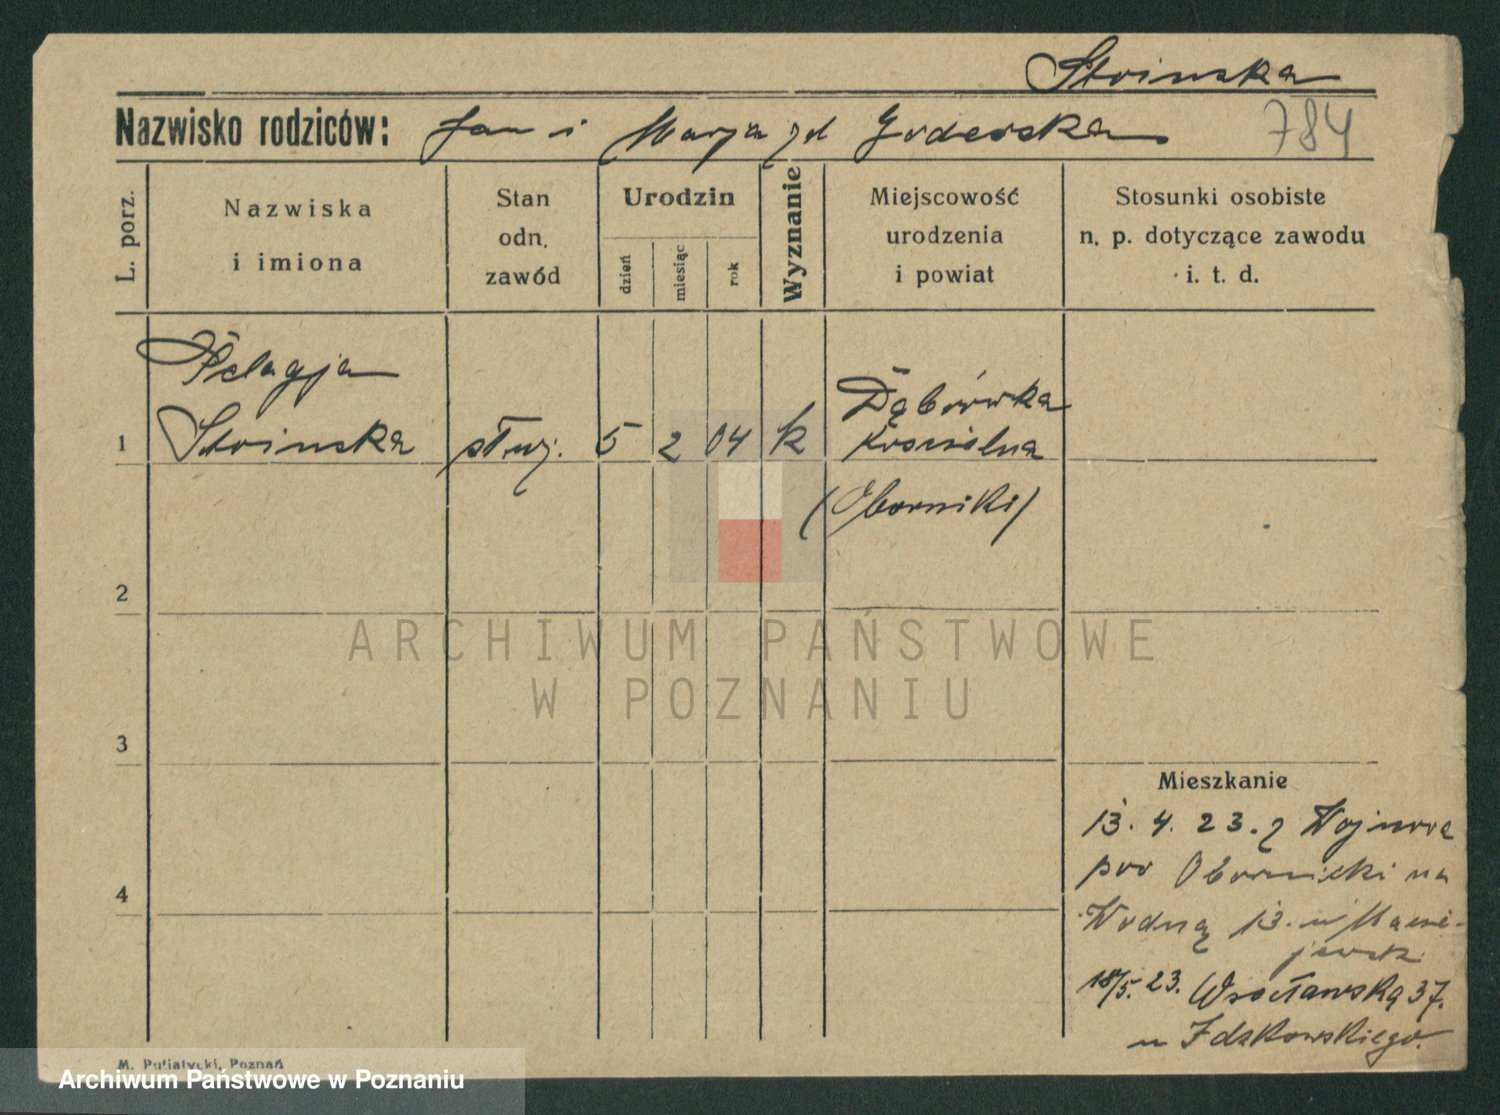 Stoinska
Nazwisko rodziców: Jan i Marja zd
784
L. porz.
Nazwiska
i imiona
Stan
odn.
zawód
Urodzin
dzień
miesiąc
rok
Wyznanie
Miejscowość
urodzenia
i powiat
Stosunki osobiste
n. p. dotyczące zawodu
i. t. d.
Pelagja
1 Stoinska służ. 5 2 04 k Dąbrówka
Kościelna
(Oborniki)
2
3
4
ARCHIWUM PAŃSTWOWE
W POZNANIU
Mieszkanie
13. 4. 23. z
pow Obornicki na
Wodną 13. u
18/5. 23. Wrocławską 37.
u
M. Putiatycki, Poznań
Archiwum Państwowe w Poznaniu